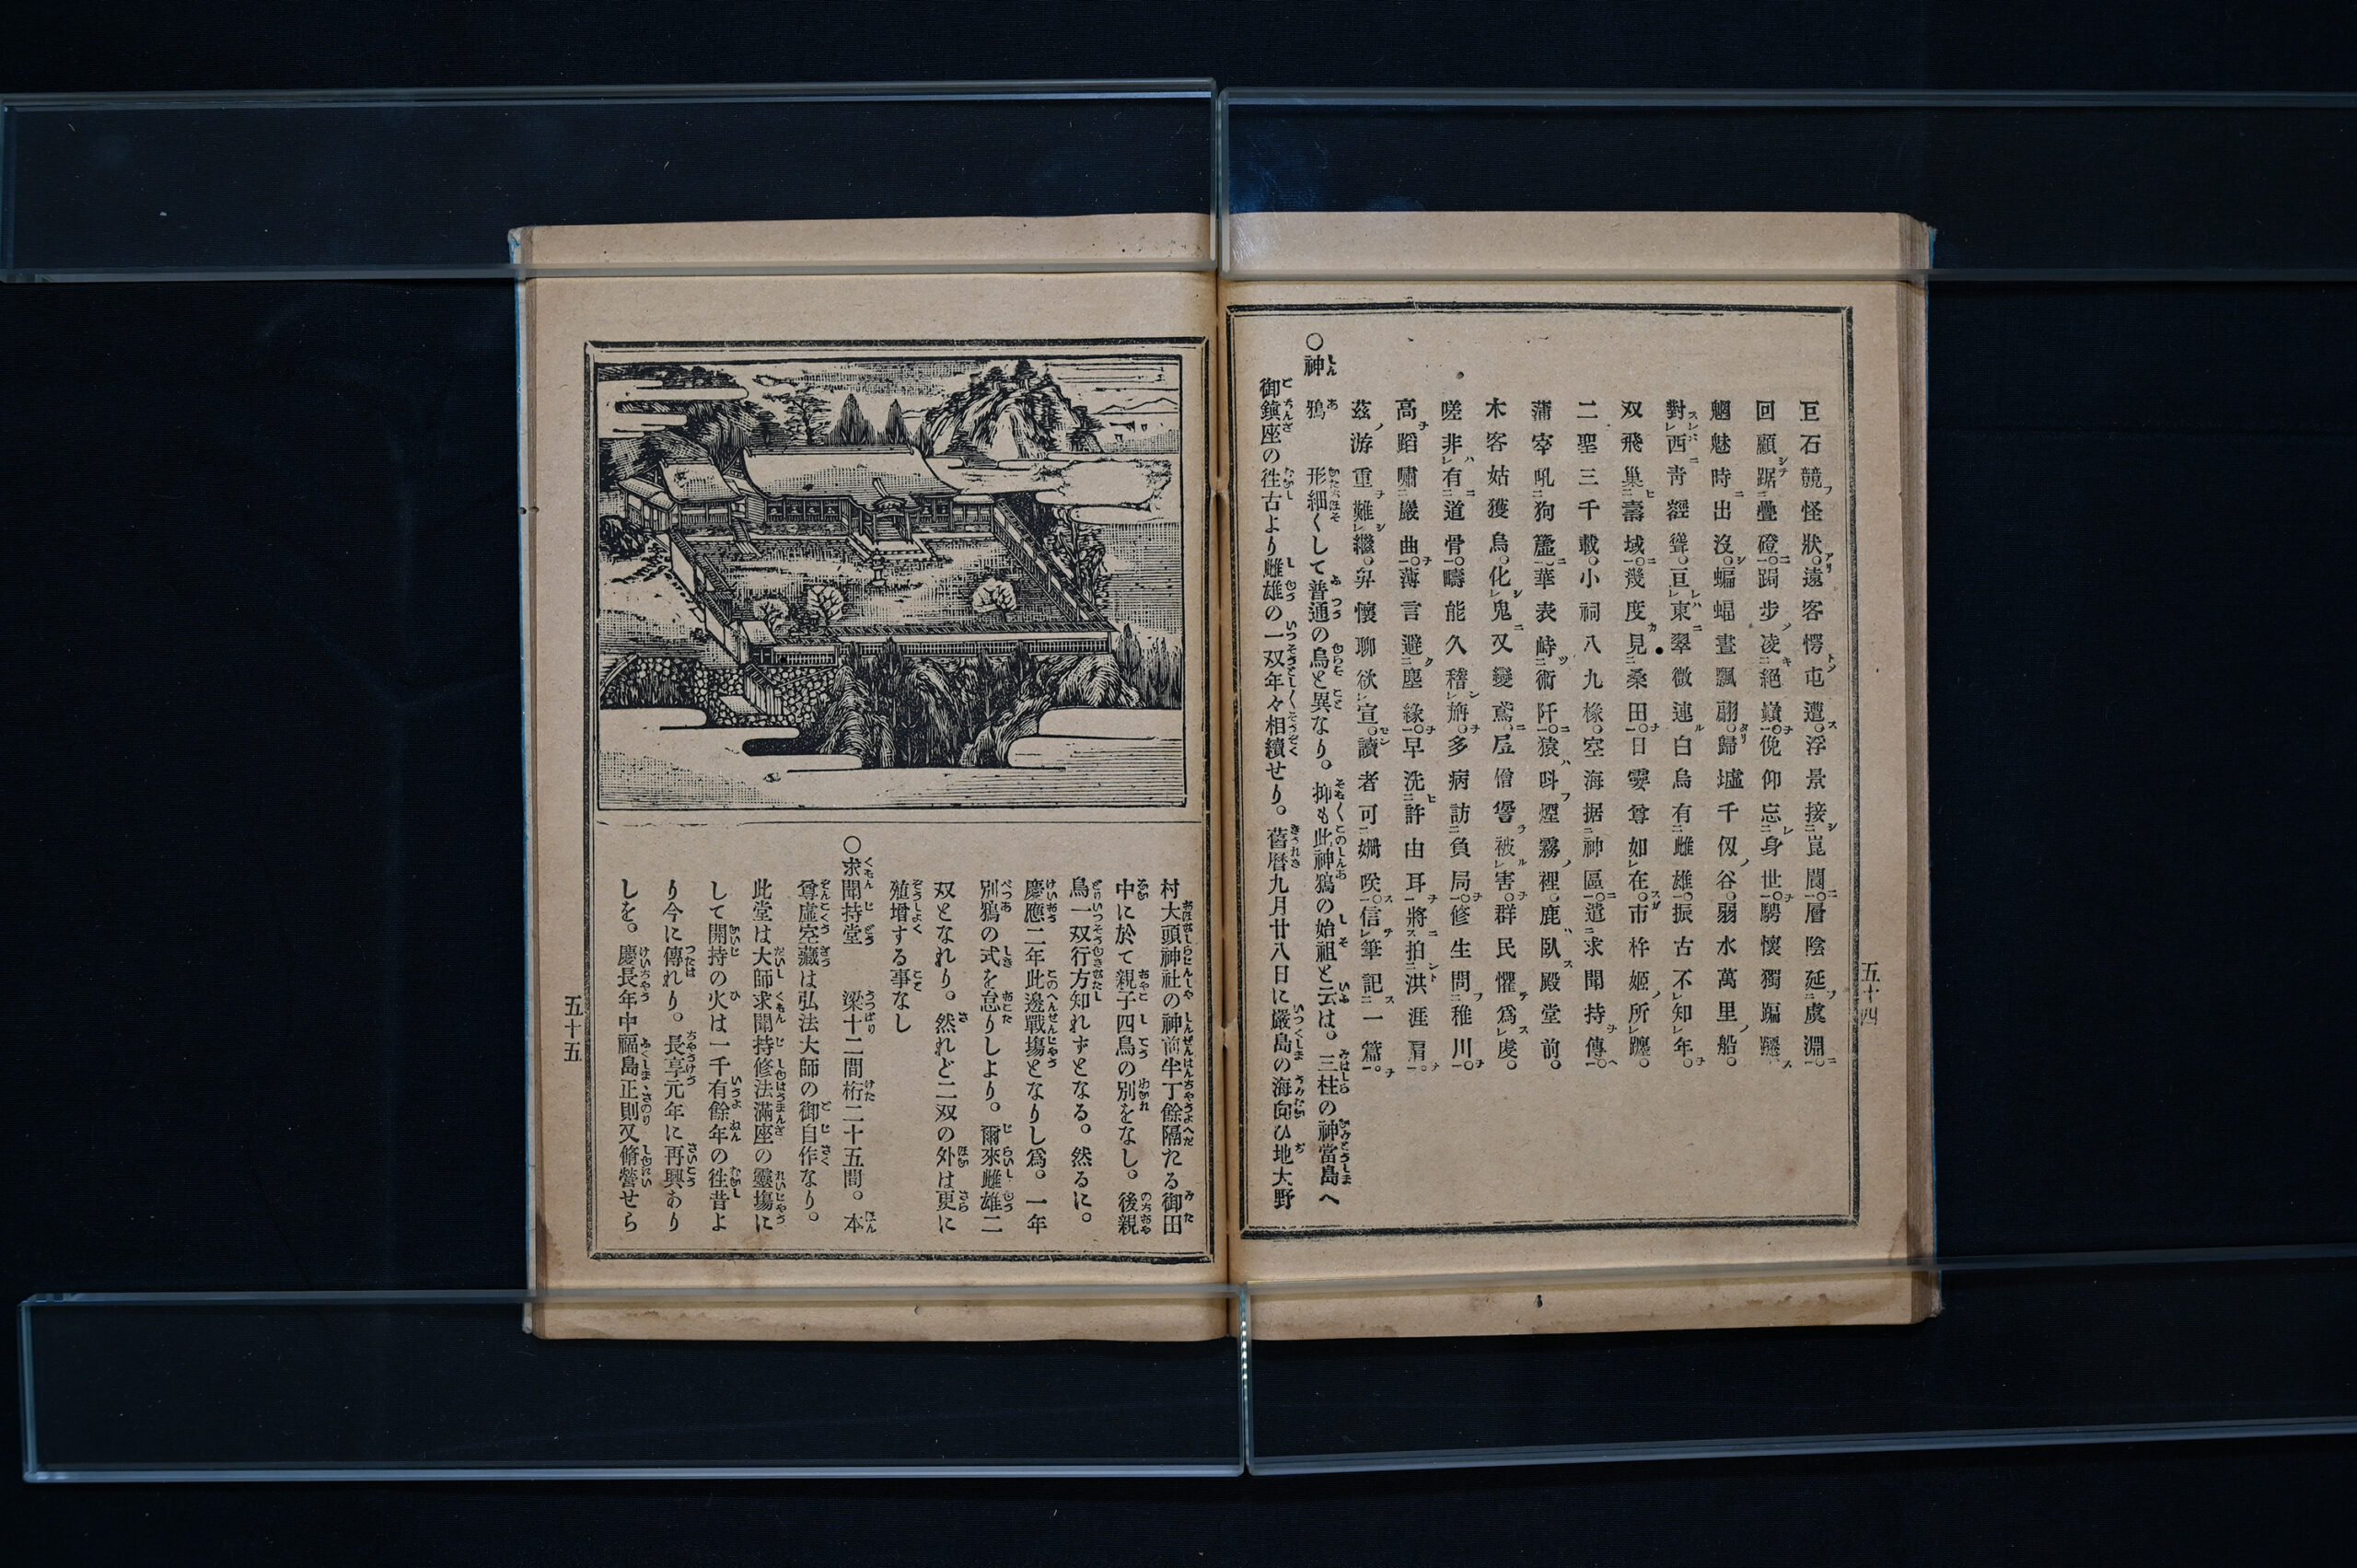 巨石競怪狀。遠客愕屯邅。浮景接崑閬。層陰延虞淵。
回顧踞疊磴。跼步凌絕巓。俛仰忘身世。騁懷獨蹁躚。
魍魅時出沒。蝙蝠晝飄翩。歸墟千仭谷。弱水萬里船。
對西靑聳。亘東翠微連。白烏有雌雄。振古不知年。
双飛巢壽域。幾度見桑田。日孁尊如在。市杵姬所躔。
二聖三千載。小祠八九椽。空海据神區。遣求聞持傳。
蒲宰吼狗。華表峙術阡。猿呌煙霧裡。鹿臥殿堂前。
木客姑獲鳥。化鬼又變鳶。僧被害。群民懼爲虔。
嗟非有道骨。疇能久稽旃。多病訪負局。修生問稚川。
高蹈嘯巖曲。薄言避塵緣。早洗許由耳。將拍洪涯肩。
茲游重難繼。弁懷聊欲宣。讀者可姍咲。信筆記一篇。
○神鴉 形細くして普通の烏と異なり。抑も此神鴉の始祖と云は。三柱の神當島へ
御鎭座の徃古より雌雄の一双年々相續せり。舊曆九月廿八日に嚴島の海向ひ地大野
五十四
村大頭神社の神前半丁餘隔たる御田
中に於て親子四烏の別をなし。後親
烏一双行方知れずとなる。然るに。
慶應二年此邊戰塲となりし爲。一年
別鴉の式を怠りしより。爾來雌雄二
双となれり。然れど二双の外は更に
殖增する事なし
○求聞持堂 梁十二間桁二十五間。本
尊虛空藏は弘法大師の御自作なり。
此堂は大師求聞持修法滿座の靈塲に
して開持の火は一千有餘年の徃昔よ
り今に傳れり。長享元年に再興あり
しを。慶長年中福島正則又脩營せら
五十五